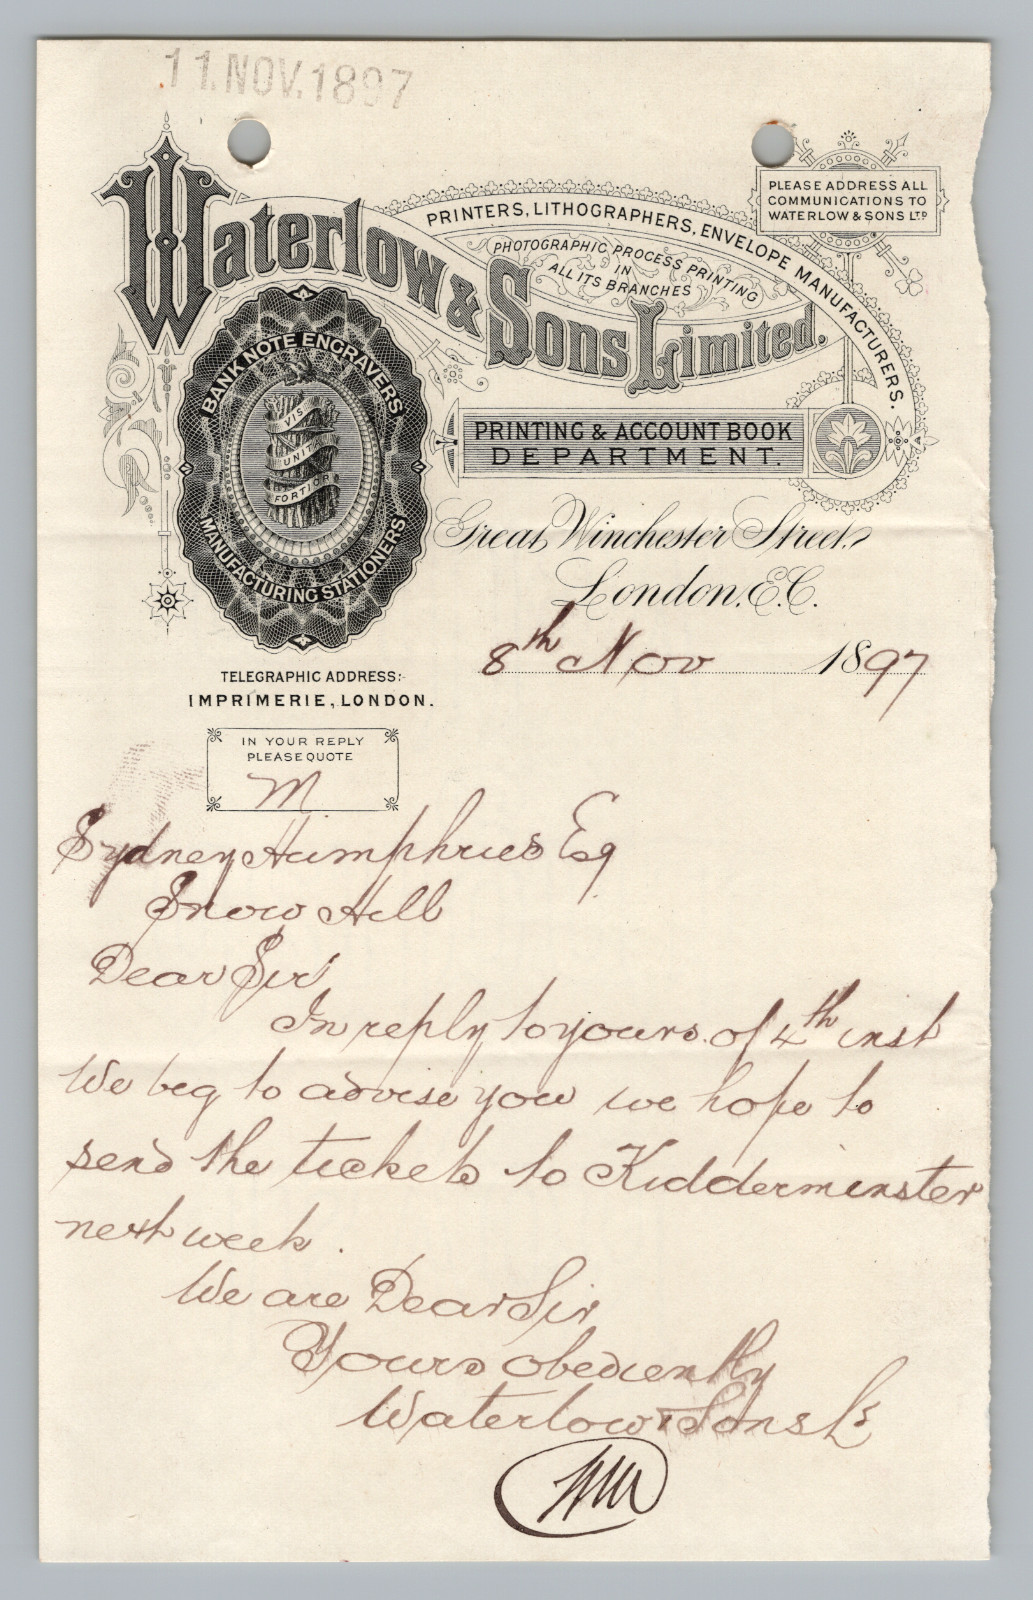 11.NOV.1897
Waterlow & Sons Limited.
PRINTERS, LITHOGRAPHERS, ENVELOPE MANUFACTURERS.
PHOTOGRAPHIC PROCESS PRINTING
IN
ALL ITS BRANCHES
PLEASE ADDRESS ALL
COMMUNICATIONS TO
WATERLOW & SONS LTD
BANK NOTE ENGRAVERS
VIS
UNITA
FORTIOR
MANUFACTURING STATIONERS
PRINTING & ACCOUNT BOOK
DEPARTMENT.
Great Winchester Street,
London, E.C.
8th Nov 1897
TELEGRAPHIC ADDRESS:-
IMPRIMERIE, LONDON.
IN YOUR REPLY
PLEASE QUOTE
M
Sydney Humphries Esq
Snow Hill
Dear Sir
In reply to yours. of 4th inst
We beg to advise you we hope to
send the tickets to Kidderminster
next week.
We are Dear Sir
Yours obediently
Waterlow & Sons Ld